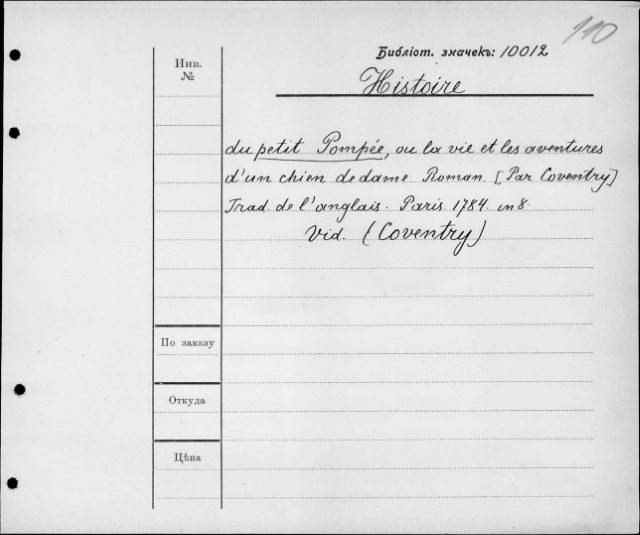 110
Библіот. значекъ: 10012
Инв.
№
Histoire
du petit Pompée, ou la vie et les aventures
d'un chien de dame Roman. [Par Coventry]
Trad. de l'anglais. Paris. 1784. in 8.
Vid. (Coventry)
По заказу
Откуда
Цѣна